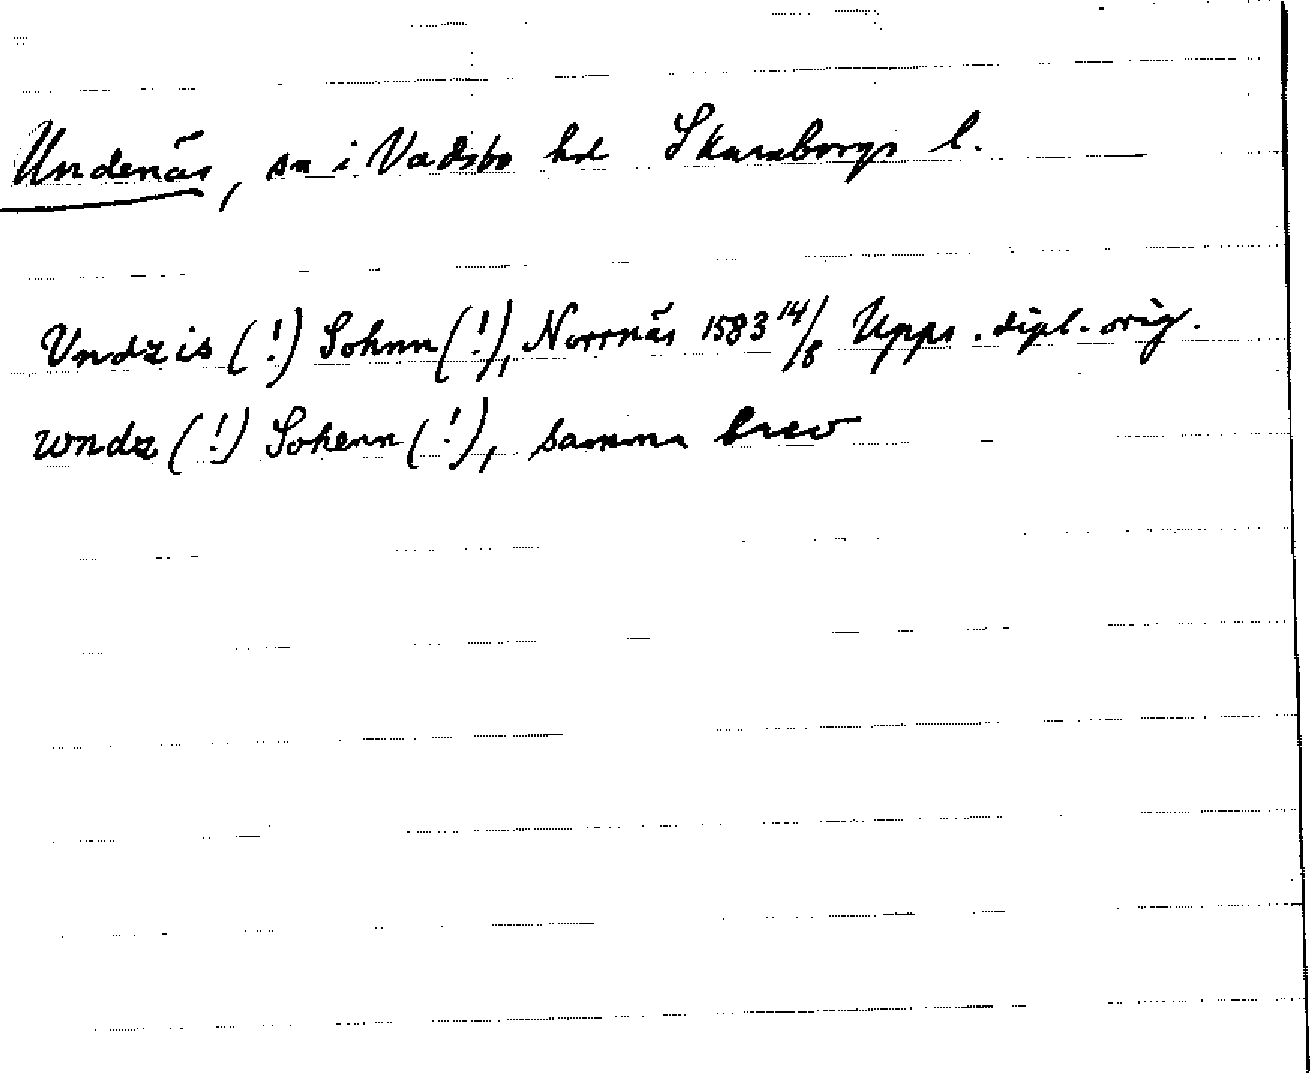 Undenäs, sn i Vadsbo hd Skaraborgs l.
Vndzis (!) Sohnn (!), Norrnäs 1583 14/8 Upps. dipl. orig.
wndz (!) Sohenn (!), samma brev